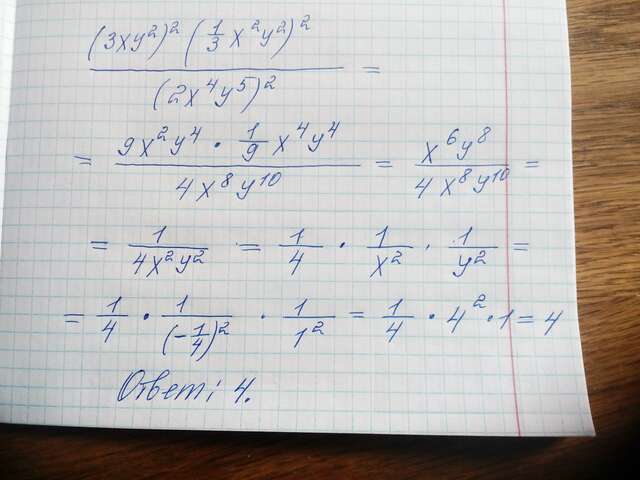 (3xy²)² (1/3 x²y²)² / (2x⁴y⁵)² =
= 9x²y⁴ · 1/9 x⁴y⁴ / 4x⁸y¹⁰ = x⁶y⁸ / 4x⁸y¹⁰ =
= 1 / 4x²y² = 1/4 · 1/x² · 1/y² =
= 1/4 · 1/(-1/4)² · 1/1² = 1/4 · 4² · 1 = 4
Ответ: 4.